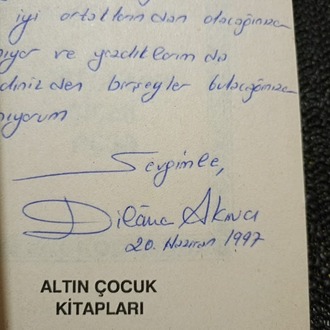 iyi ortaklarından olacağınıza
ıyor ve yazdıklarım da
dinizden birşeyler bulacağınıza
nıyorum
Sevgimle,
Dilâra Akıncı
20. Haziran 1997
ALTIN ÇOCUK
KİTAPLARI